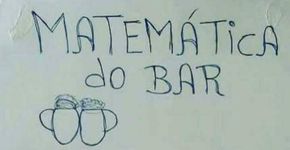 MATEMÁTiCA
do BAR